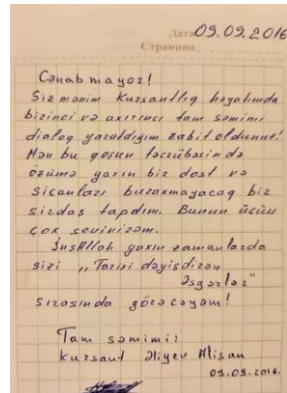 Дата 09.09.2016
Страница
Cənab mayor!
Siz mənim kursantlıq həyatımda
birinci və axırıncı tam səmimi
dialoq yaratdığım zabit oldunuz!
Mən bu qoşun təcrübəsində
özümə yaxın bir dost və
sicanları buraxmayacaq bir
sirdaş tapdım. Bunun üçün
çox sevinirəm.
İnşAllah yaxın zamanlarda
sizi „Tarixi dəyişdirən
Əsgərlər"
sırasında görəcəyəm!
Tam səmimi:
kursant Əliyev Əlişan
09.09.2016.